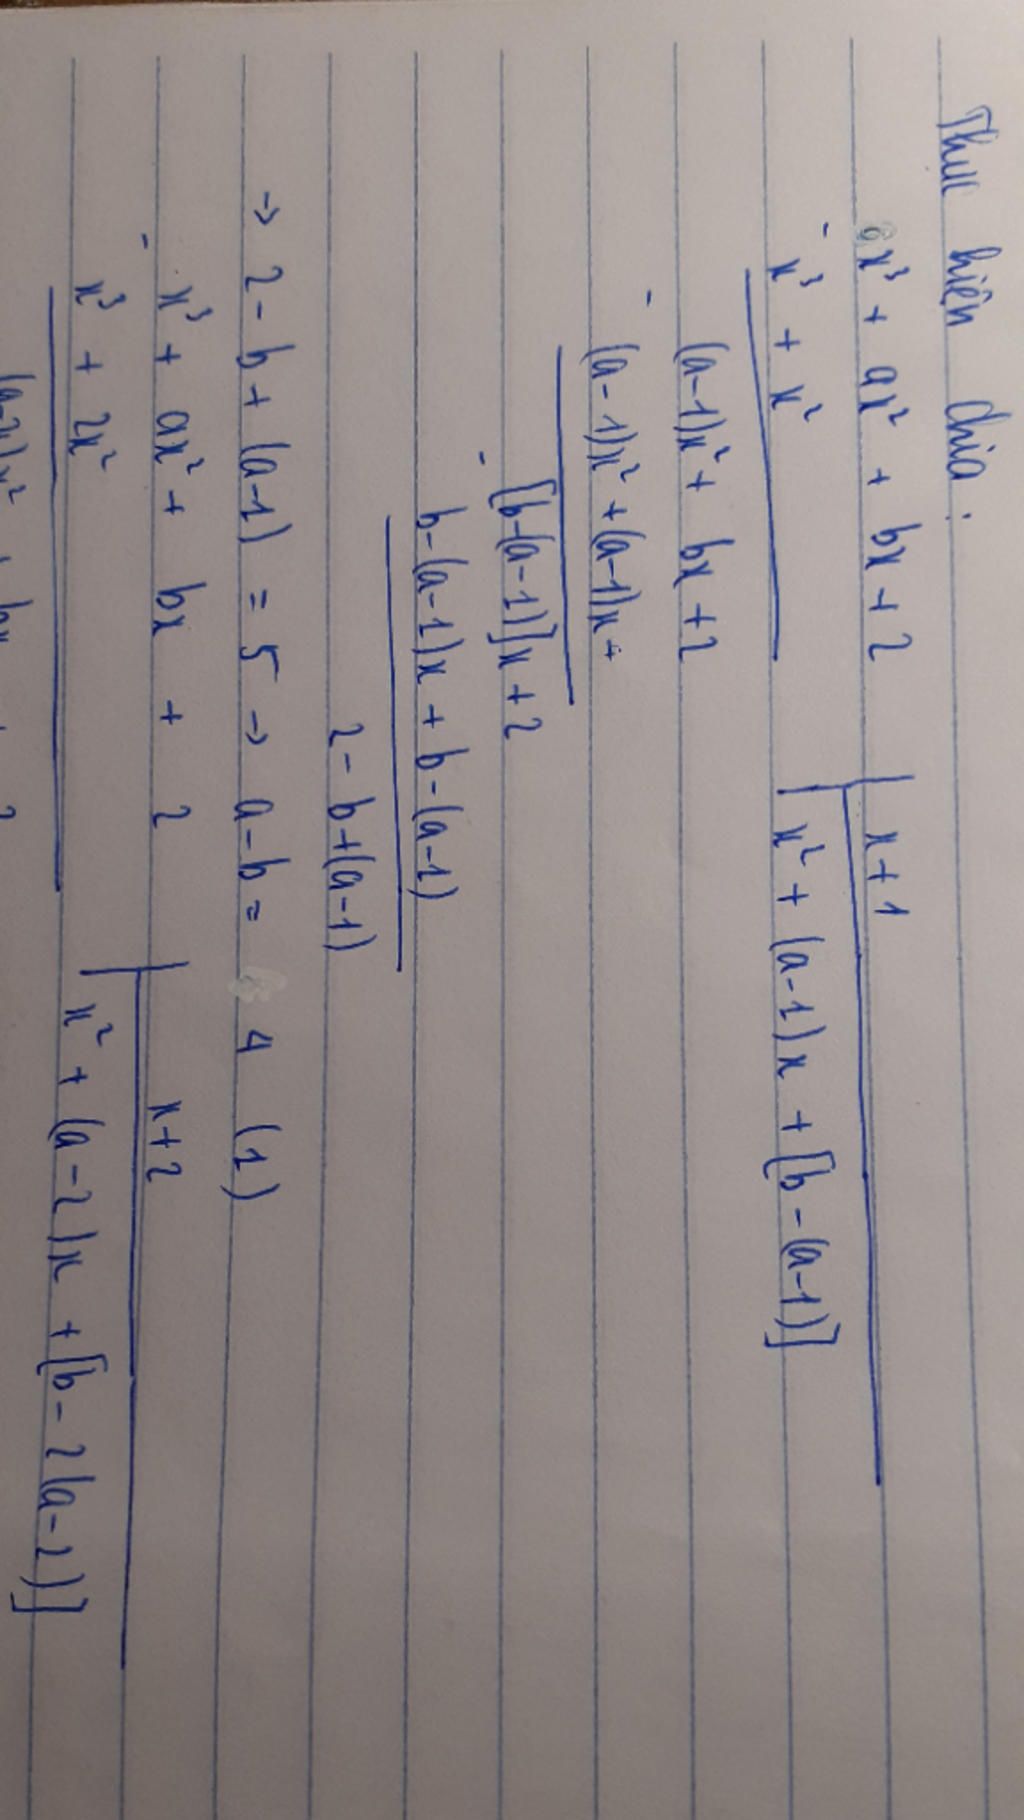 Thực hiện chia:
x³ + ax² + bx + 2 | x+1
- x³ + x² | x² + (a-1)x + [b-(a-1)]
(a-1)x² + bx + 2
- (a-1)x² + (a-1)x +
[b-(a-1)]x + 2
- b-(a-1)x + b-(a-1)
2 - b+(a-1)
→ 2 - b + (a-1) = 5 → a-b = 4 (1)
- x³ + ax² + bx + 2 | x+2
x³ + 2x² | x² + (a-2)x + [b-2(a-2)]
(a-2)x² + bx + 2